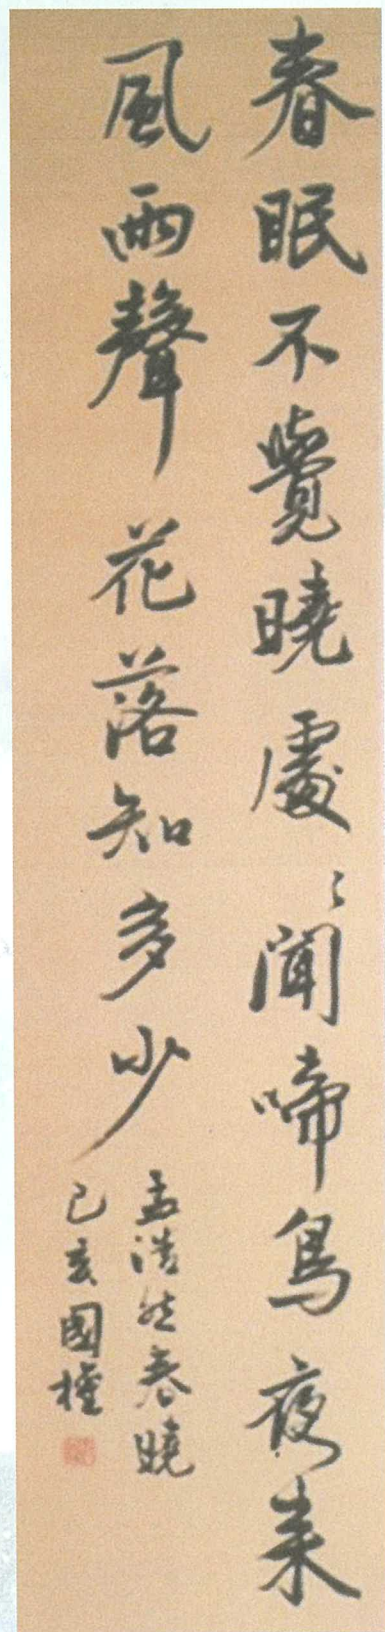 春眠不覺曉處〻聞啼鳥夜来
風雨聲花落知多少
孟浩然春曉
己亥國權